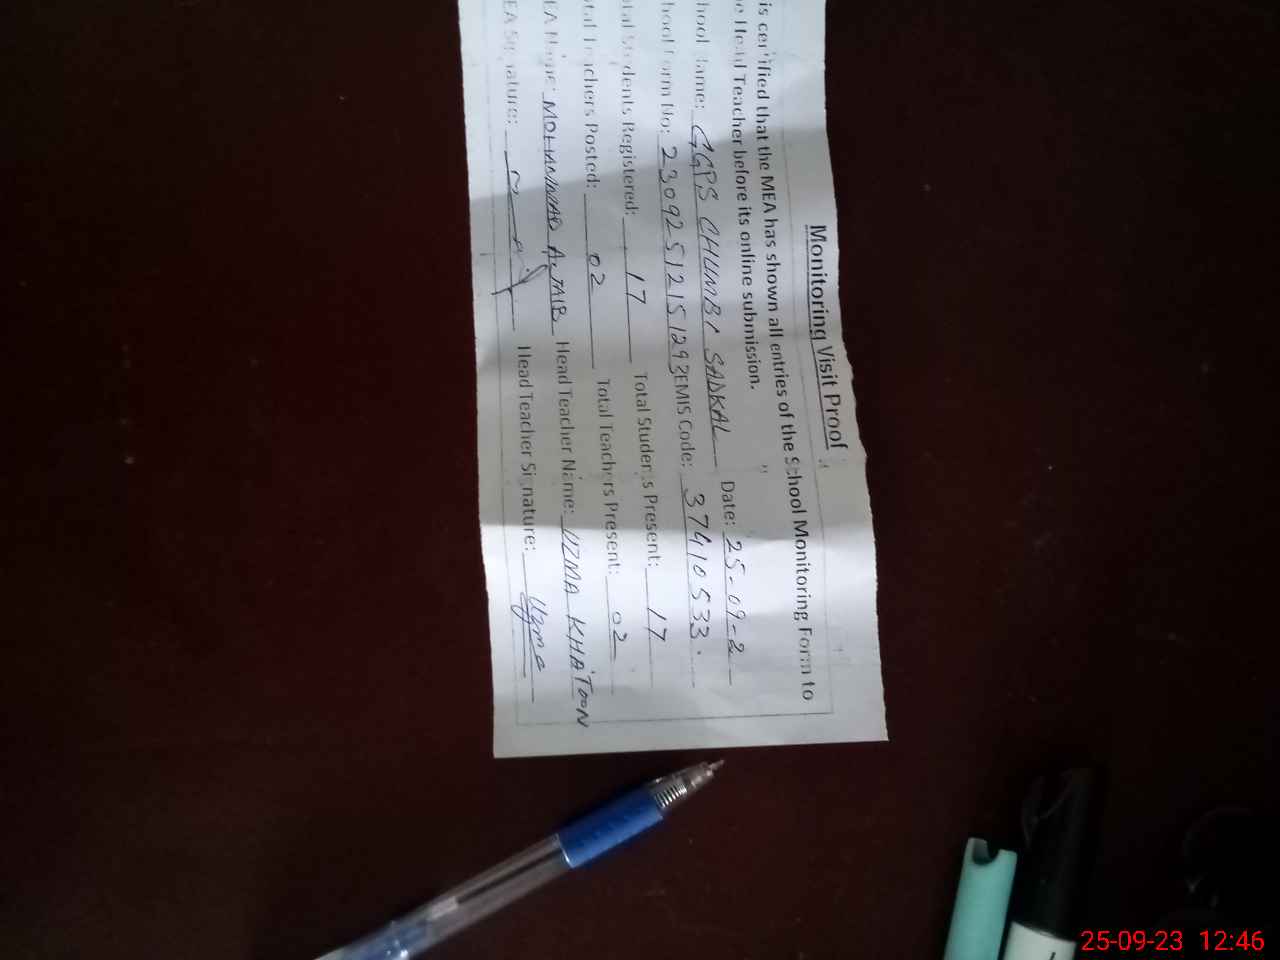 Monitoring Visit Proof
is certified that the MEA has shown all entries of the School Monitoring Form to
e Head Teacher before its online submission.
hool Name: GGPS CHUMBI SADKAL Date: 25-09-2
hool Form No: 23092512151293 EMIS Code: 37410533.
otal Students Registered: 17 Total Students Present: 17
otal Teachers Posted: 02 Total Teachers Present: 02
EA Name: MOHAMMAD Head Teacher Name: UZMA KHATOON
EA Signature: Head Teacher Signature: Uzma
25-09-23 12:46